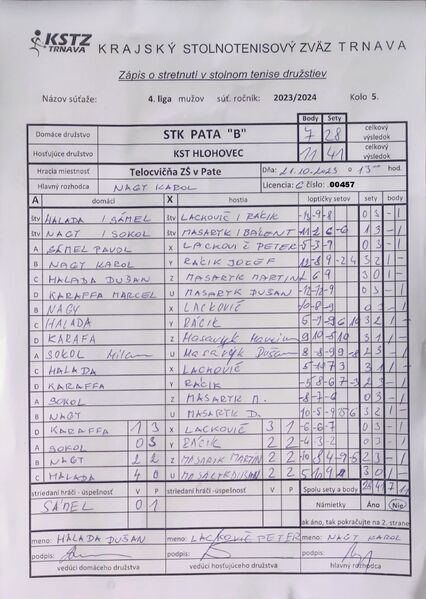 KSTZ
TRNAVA
KRAJSKÝ STOLNOTENISOVÝ ZVÄZ TRNAVA
Zápis o stretnutí v stolnom tenise družstiev
Názov súťaže: 4. liga mužov súť. ročník: 2023/2024 Kolo 5.
Body Sety
Domáce družstvo STK PATA "B" 7 28 celkový výsledok
Hosťujúce družstvo KST HLOHOVEC 11 41 celkový výsledok
Hracia miestnosť Telocvičňa ZŠ v Pate Dňa: 21.10.2023 o 13 hod.
Hlavný rozhodca NAGY KAROL Licencia: C číslo: 00457
A domáci X hostia loptičky setov sety body
štv HALADA / SÁMEL štv LACKOVIČ / RÁCIK 03 -/1
štv NAGY / SOKOL štv MASARYK / BALENT 13 -/1
A SÁMEL PAVOL X LACKOVIČ PETER -5-3-9 03 -/1
B NAGY KAROL Y RÁCIK JOZEF 32 1/-
C HALADA DUŠAN Z MASARYK MARTIN 30 1/-
D KARAFFA MARCEL U MASARYK DUŠAN 03 -/1
B NAGY X LACKOVIČ 03 -/1
C HALADA Y RÁCIK 32 1/-
D KARAFA Z Masaryk 31
A SOKOL Milan U Masaryk Dušan 23 -/1
C HALADA X LACKOVIČ 31 1/-
D KARAFFA Y RÁCIK 23 -/1
A SOKOL Z MASARYK M. -8-7-6 03 -/1
B NAGY U MASARYK D. 32 1/-
D KARAFFA 1 3 X LACKOVIČ 3 1 -6-6-7 03 -/1
A SOKOL 0 3 Y RÁCIK 2 2 -4-3-2 03 -/1
B NAGY 2 2 Z MASARIK MARTIN 2 2 23 -/1
C HALADA 4 0 U MASARYK DUŠAN 2 2 30 1/-
striedaní hráči - úspešnosť V P striedaní hráči - úspešnosť V P Spolu sety a body
SÁMEL 0 1 Námietky Áno Nie
ak áno, tak pokračujte na 2. strane
meno: HALADA DUŠAN meno: LACKOVIČ PETER meno: NAGY KAROL
podpis: podpis: podpis:
vedúci domáceho družstva vedúci hosťujúceho družstva hlavný rozhodca